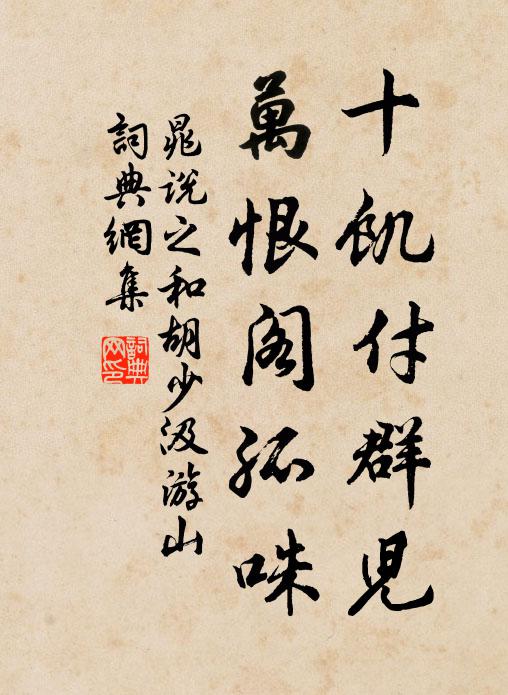 十飢付群兒
萬恨閣孤咮
晁說之和胡少汲游山
詞典網集
詞典
網印